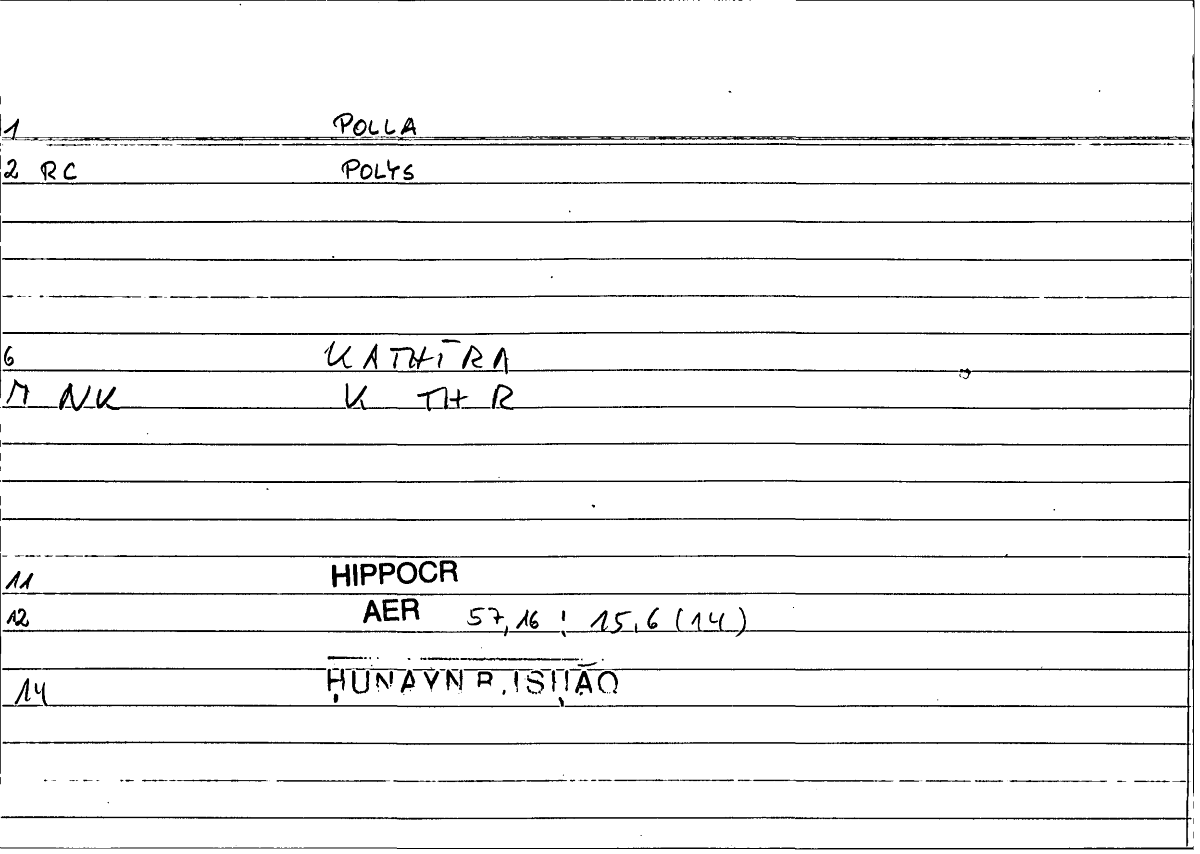 1 POLLA
2 RC POLYS
6 KATHĪRA
7 NK K TH R
11 HIPPOCR
12 AER 57,16 ; 15,6 (14)
14 ḤUNAYN B. ISḤĀQ